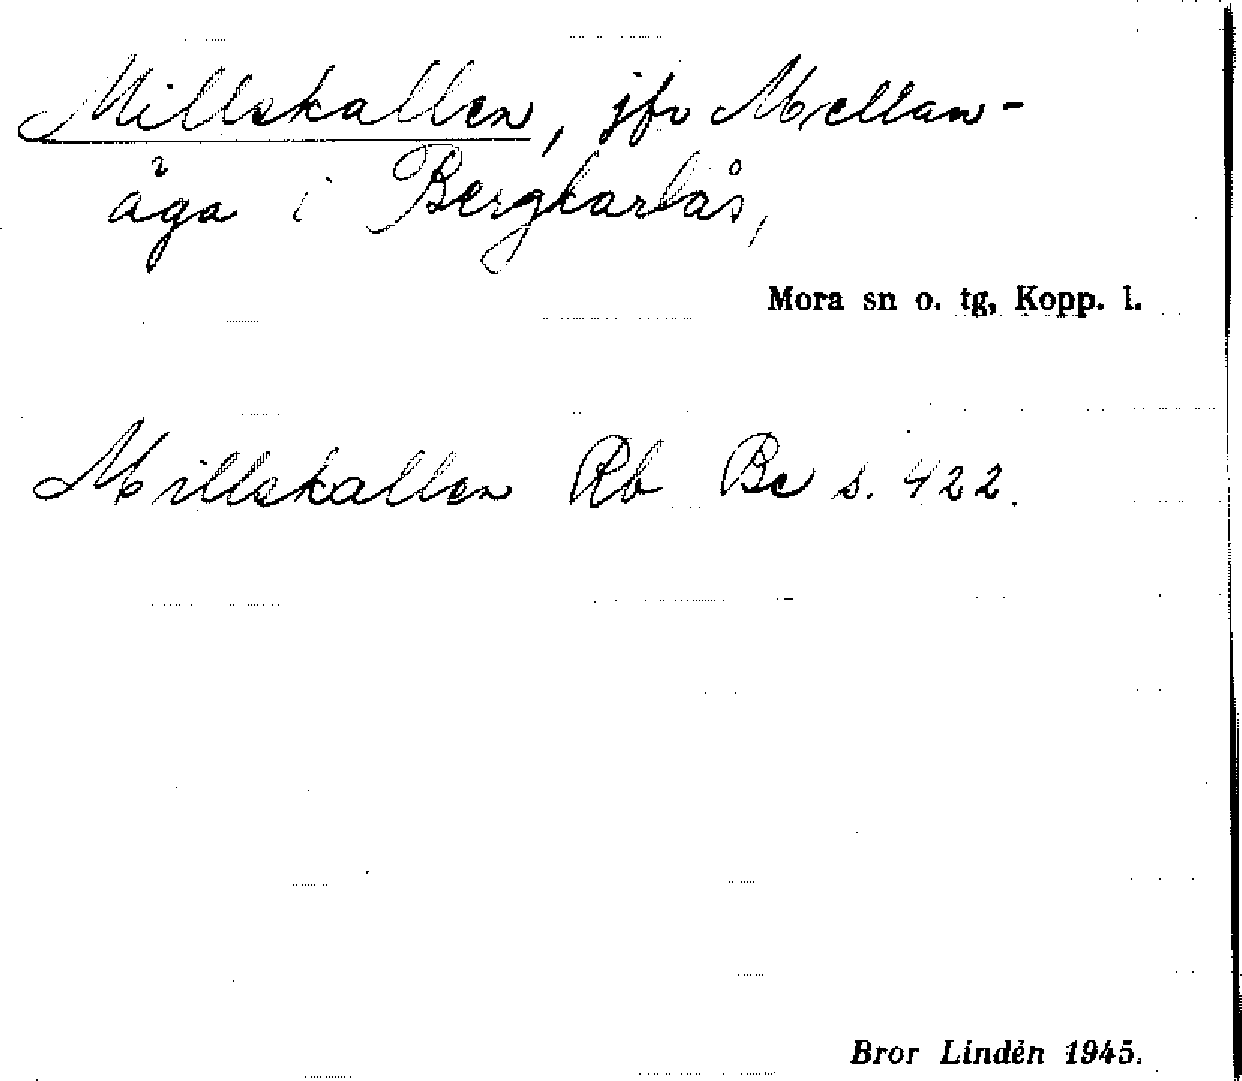 Millskallen, jfr Mellan-
åga i Bergkarlås,
Mora sn o. tg, Kopp. l.
Millskallen Rb Be s. 422.
Bror Lindén 1945.